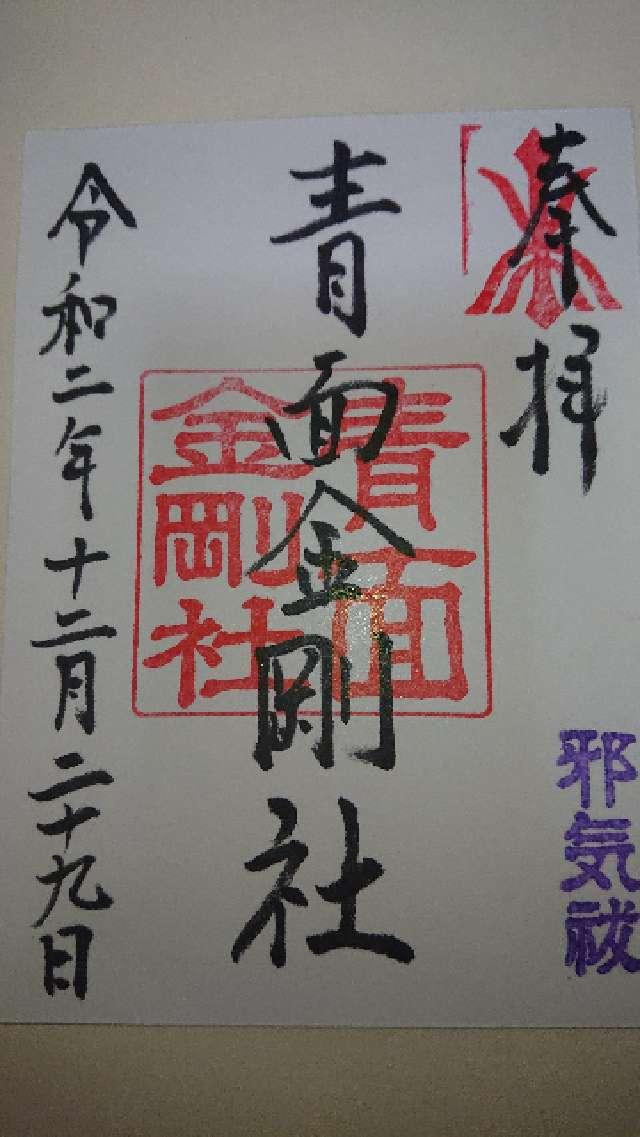 奉拝
邪気祓
青面金剛社
青面
金剛社
令和二年十二月二十九日